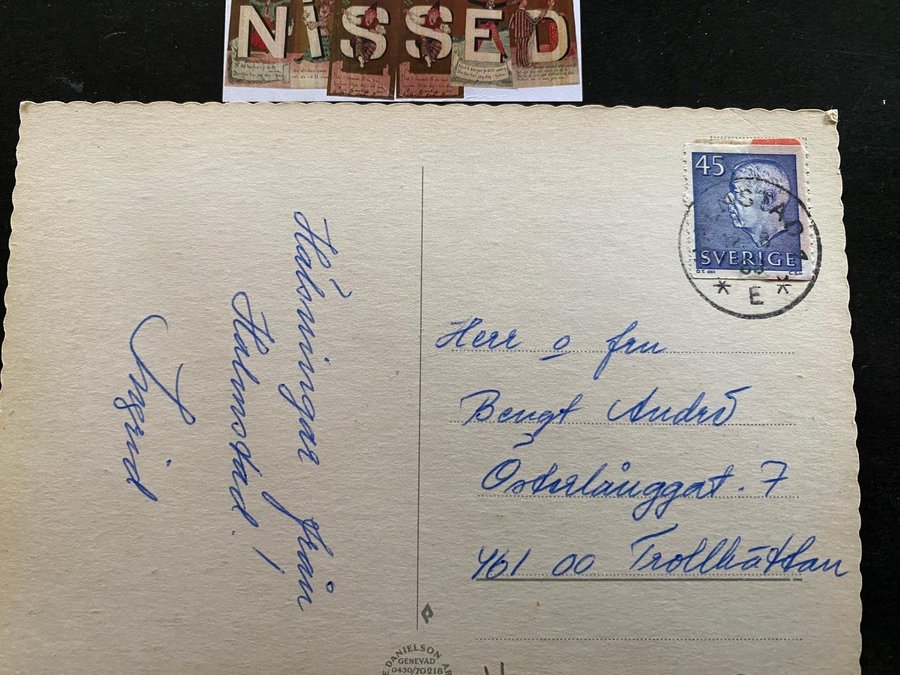 NISSED
Hälsningar från
Halmstad!
Ingrid
45
SVERIGE
E
Herr o fru
Bengt André
Österlånggat. 7
461 00 Trollhättan
E. DANIELSON AB
GENEVAD
0430/70218